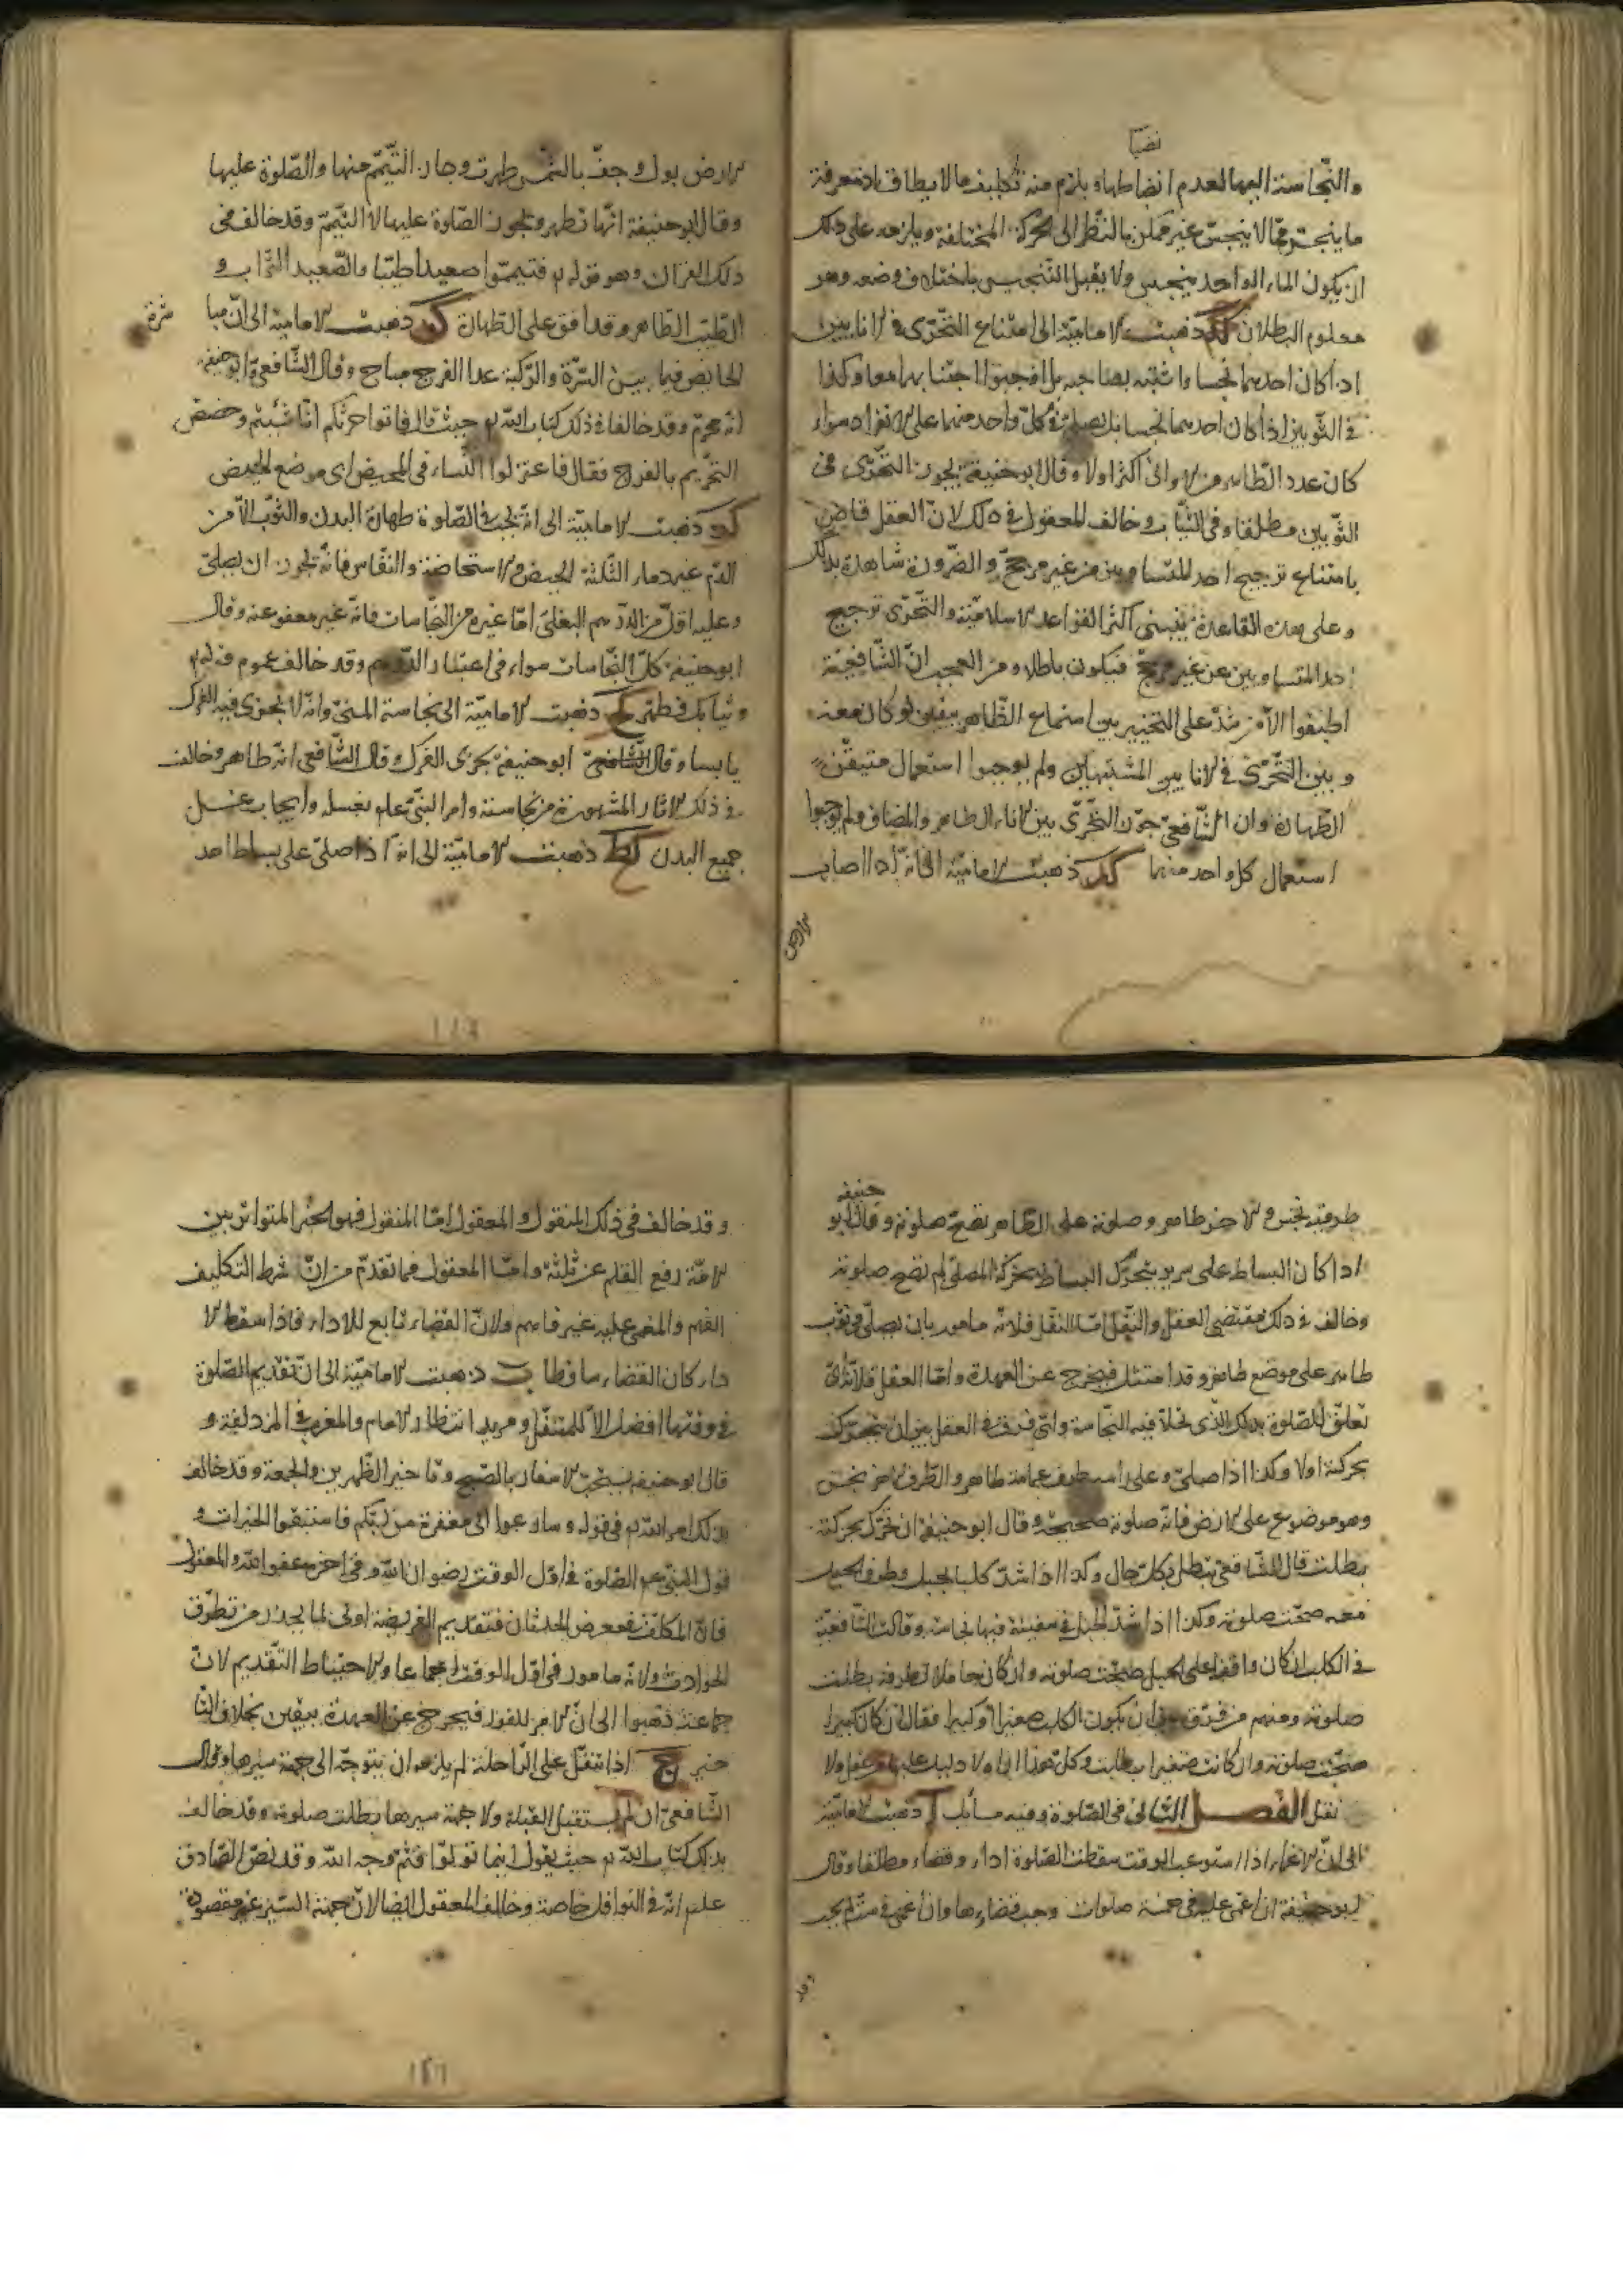 نصبا
والنجاسة اليها لعدم انضباطها ويلزم منه تكليف ما لا يطاق اذ معرفة
ما ينجس مما لا ينجس غير ممكن بالنظر الى الحركة المختلفة ويلزمه على ذلك
ان يكون الماء الواحد ينجس ولا يقبل التنجيس باختلاف وضعه وهو
معلوم البطلان كد ذهبت الامامية الى امتناع التحرى فى الانايين
اذا كان احدهما نجسا واشتبه بصاحبه بل اوجبوا اجتنابهما معا وكذا
فى الثوبين اذا كان احدهما نجسا بل يصلى فى كل واحد منهما على الانفراد سواء
كان عدد الطاهر من الاوانى اكثر اولا وقال ابو حنيفة يجوز التحرى فى
الثوبين مطلقا وفى الثياب وخالف المعقول فى ذلك لان العقل قاض
بامتناع ترجيح احد المتساويين من غير مرجح والضرورة شاهدة بذلك
وعلى هذه القاعدة يبتنى اكثر القواعد الاسلامية والتحرى ترجيح
احد المتساويين عن غير مرجح فيكون باطلا ومن العجب ان الشافعية
اطبقوا الا من شذ على التخيير بين استعمال الطاهر بيقين لو كان معه
وبين التحرى فى الانايين المشتبهين ولم يوجبوا استعمال متيقن
الطهارة وان الشافعى جوز التحرى بين الاناء الطاهر والمضاف ولم يوجبوا
استعمال كل واحد منهما كه ذهبت الامامية الى انه اذا اصاب
الارض
الارض بول وجف بالشمس طهرت وجاز التيمم منها والصلوة عليها
وقال ابو حنيفة انها تطهر وتجوز الصلوة عليها لا التيمم وقد خالف فى
ذلك القران وهو قوله تع فتيمموا صعيدا طيبا والصعيد التراب و
الطيب الطاهر وقد وافق على الطهارة كو ذهبت الامامية الى ان مبا
شرة
الحايض فيما بين السرة والركبة عدا الفرج مباح وقال الشافعى وابو حنيفة
انه محرم وقد خالفا فى ذلك كتاب الله تع حيث قال فاتوا حرثكم انى شئتم وخصص
التحريم بالفرج فقال فاعتزلوا النساء فى المحيض اى موضع الحيض
كز ذهبت الامامية الى انه يجب فى الصلوة طهارة البدن والثوب الا من
الدم غير دماء الثلثة الحيض والاستحاضة والنفاس فانه يجوز ان يصلى
وعليه اقل من الدرهم البغلى اما غيره من النجاسات فانه غير معفو عنه وقال
ابو حنيفة كل النجاسات سواء فى اعتبار الدرهم وقد خالف عموم قوله تع
وثيابك فطهر كح ذهبت الامامية الى نجاسة المنى وانه لا يجزى فيه الفرك
يابسا وقال الشافعى ابو حنيفة يجزى الفرك وقال الشافعى انه طاهر وخالف
فى ذلك الاثار المشهورة من نجاسته وامر النبى علم بغسله وايجاب غسل
جميع البدن كط ذهبت الامامية الى انه اذا صلى على بساط احد
حنيفه
طرفيه نجس والاخر طاهر وصلوته على الطاهر تصح صلوته وقال ابو
اذا كان البساط على سرير يتحرك البساط بحركة المصلى لم تصح صلوته
وخالف فى ذلك مقتضى العقل والنقل اما النقل فلانه مامور بان يصلى فى ثوب
طاهر على موضع طاهر وقد امتثل فيخرج عن العهدة واما العقل فلانه اى
تعلق للصلوة بذلك الذى نحلا فيه النجاسة واى فرق فى العقل بين ان يتحرك
بحركته اولا وكذا اذا صلى وعلى راسه طرف عمامة طاهر والطرف الاخر نجس
وهو موضوع على الارض فانه صلوته صحيحة وقال ابو حنيفة ان تحرك بحركته
بطلت قال الشافعى تبطل بكل حال وكذا اذا شد كلبا بحبل وطرف الحبل
معه صحت صلوته وكذا اذا شد الحبل فى سفينة فيها نجاسة وقالت الشافعية
فى الكلب ان كان واقفا على الحبل صحت صلوته وان كان حاملا لطرفه بطلت
صلوته ومنهم من فرق بين ان يكون الكلب صغيرا او كبيرا فقال ان كان كبيرا
صحت صلوته وان كانت صغيرا بطلت وكل هذا اراء لا دليل عليها من عقل ولا
نقل الفصل الثانى فى الصلوة وفيه مسائل آ ذهبت الامامية
الى ان الاغماء اذا استوعب الوقت سقطت الصلوة اداء وقضاء مطلقا وقال
ابو حنيفة ان اغمى عليه فى خمسة صلوات وجب قضاءها وان اغمى فى ست لم يجب
وقد
وقد خالف فى ذلك المنقول والمعقول اما المنقول فهو الخبر المتواتر بين
الامة رفع القلم عن ثلثة واما المعقول فما تقدم من ان شرط التكليف
الفهم والمغمى عليه غير فاهم ولان القضاء تابع للاداء فاذا سقط الا
داء كان القضاء ساقطا ب ذهبت الامامية الى ان تقديم الصلوة
فى وقتها افضل الا للمتنفل ومريد انتظار الامام والمغرب فى المزدلفة و
قال ابو حنيفة يستحب الاسفار بالصبح وتاخير الظهرين والجمعة وقد خالف
بذلك امر الله تع فى قوله وسارعوا الى مغفرة من ربكم فاستبقوا الخيرات و
قول النبى علم الصلوة فى اول الوقت رضوان الله وفى اخره عفو الله والمعقول
فان المكلف فى معرض الحدثان فتقديم الفريضة اولى لما يحذر من تطرق
الحوادث ولانه مامور فى اول الوقت اجماعا والاحتياط التقديم لان
جماعة ذهبوا الى ان الامر للفور فيخرج عن العهدة بيقين بخلاف التا
خير ج اذا تنفل على الراحلة لم يلزمه ان يتوجه الى جهة سيرها وقال
الشافعى ان لم يستقبل القبلة ولا جهة سيرها بطلت صلوته وقد خالف
بذلك كتاب الله تع حيث يقول اينما تولوا فثم وجه الله وقد نص الصادق
علم انه فى النوافل خاصة وخالف المعقول ايضا لان جهة السير غير مقصودة